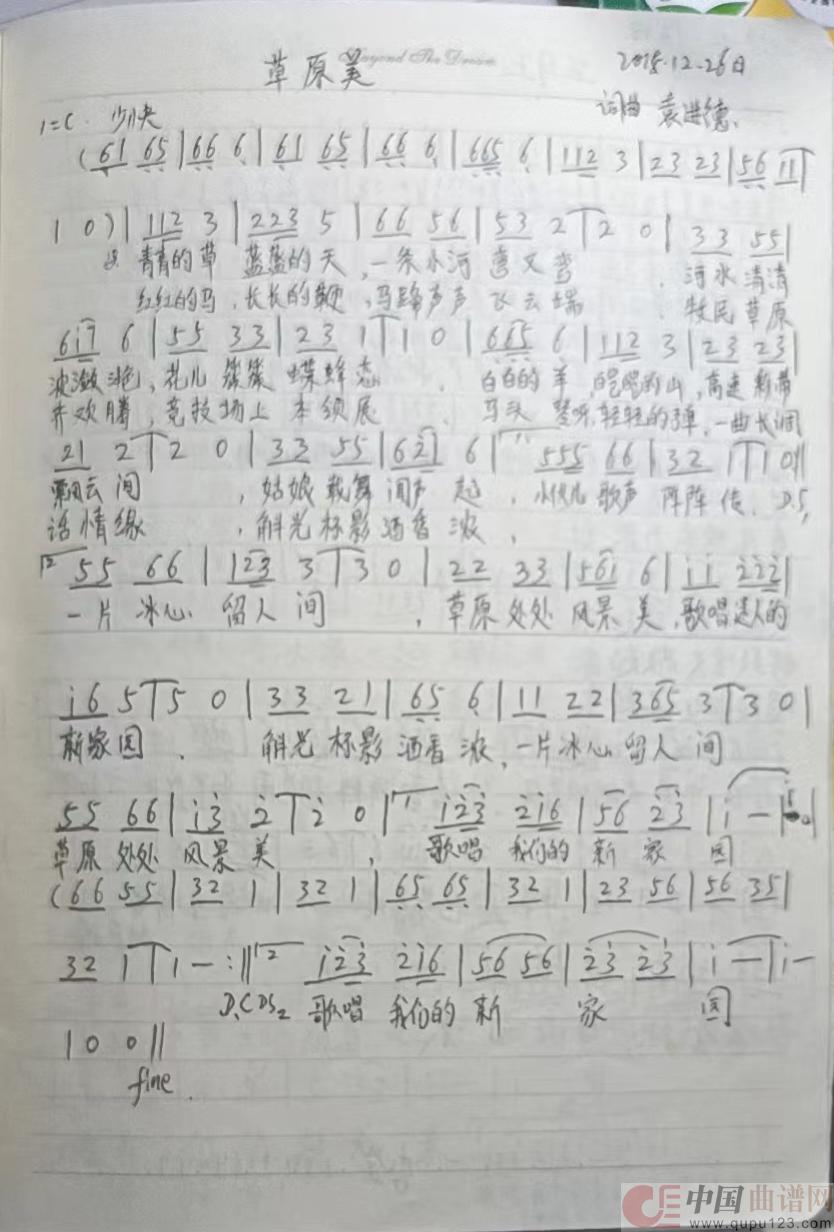 草原美
Beyond The Dream
2015.12.26日
1=C 少快
词曲 袁进德
(61 65|66 6|61 65|66 6|665 6|112 3|23 23|56 11|
1 0)|112 3|223 5|66 56|53 2|2 0|33 55|
青青的草 蓝蓝的天,一条小河 弯又弯 河水清清
红红的马,长长的鞭,马蹄声声 飞云端 牧民草原
6i7 6|55 33|23 1|1 0|665 6|112 3|23 23|
花儿 簇簇 白白的羊,的山,
竞技场上 本领展 马头 轻轻的弹,一曲长调
21 2|2 0|33 55|62i 6|1. 555 66|32 1|1 0||
飘云间,姑娘载舞 闻声起,歌声 阵阵传. D.S,
话情缘,斛光杯影 洒香浓,
2 55 66|123 3|3 0|22 33|561 6|ii 222|
一片 冰心 留人间,草原处处 风景美,歌唱迷人的
i6 5|5 0|33 21|65 6|11 22|365 3|3 0|
新家园. 斛光杯影 洒香浓,一片冰心 留人间
55 66|i3 2|2 0|1. i23 2i6|56 23|i —|
草原处处 风景美,歌唱 我们的 新家园
(66 55|32 1|32 1|65 65|32 1|23 56|56 35|
32 1|1 —:||2 i23 2i6|56 56|23 23|i —|i—
D.C DS2 歌唱 我们的 新 家 园
1 0 0||
fine.
中国曲谱网
www.qupu123.com